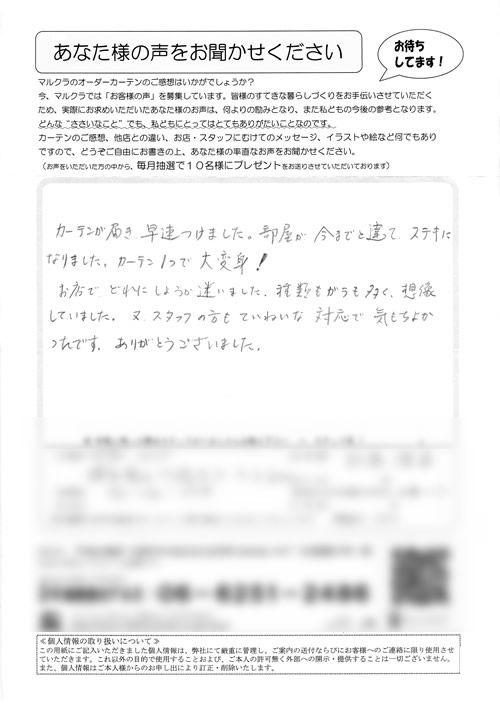 あなた様の声をお聞かせください
お待ち
してます！
マルクラのオーダーカーテンのご感想はいかがでしょうか？
今、マルクラでは「お客様の声」を募集しています。皆様のすてきな暮らしづくりをお手伝いさせていただく
ため、実際にお求めいただいたあなた様のお声は、何よりの励みとなり、また私どもの今後の参考となります。
どんな“ささいなこと”でも、私どもにとってはとてもありがたいことなのです。
カーテンのご感想、他店との違い、お店・スタッフにむけてのメッセージ、イラストや絵など何でもあり
ですので、どうぞご自由にお書きの上、あなた様の率直なお声をお聞かせください。
（お声をいただいた方の中から、毎月抽選で１０名様にプレゼントをお送りさせていただいております）
カーテンが届き、早速つけました。部屋が今までと違って、ステキに
なりました。カーテン1つで大変身！
お店で、どれにしようか迷いました。種類もがらも多く、想像
していました。又、スタッフの方もていねいな対応で気もちよか
ったです。ありがとうございました。
06-6251-2486
≪個人情報の取り扱いについて≫
この用紙にご記入いただきました個人情報は、弊社にて厳重に管理し、ご案内の送付ならびにお客様へのご連絡に限り使用させ
ていただきます。これ以外の目的で使用することおよび、ご本人の許可無く外部への開示・提供することは一切ございません。
また、個人情報はご本人様からのお申し出により訂正・削除いたします。